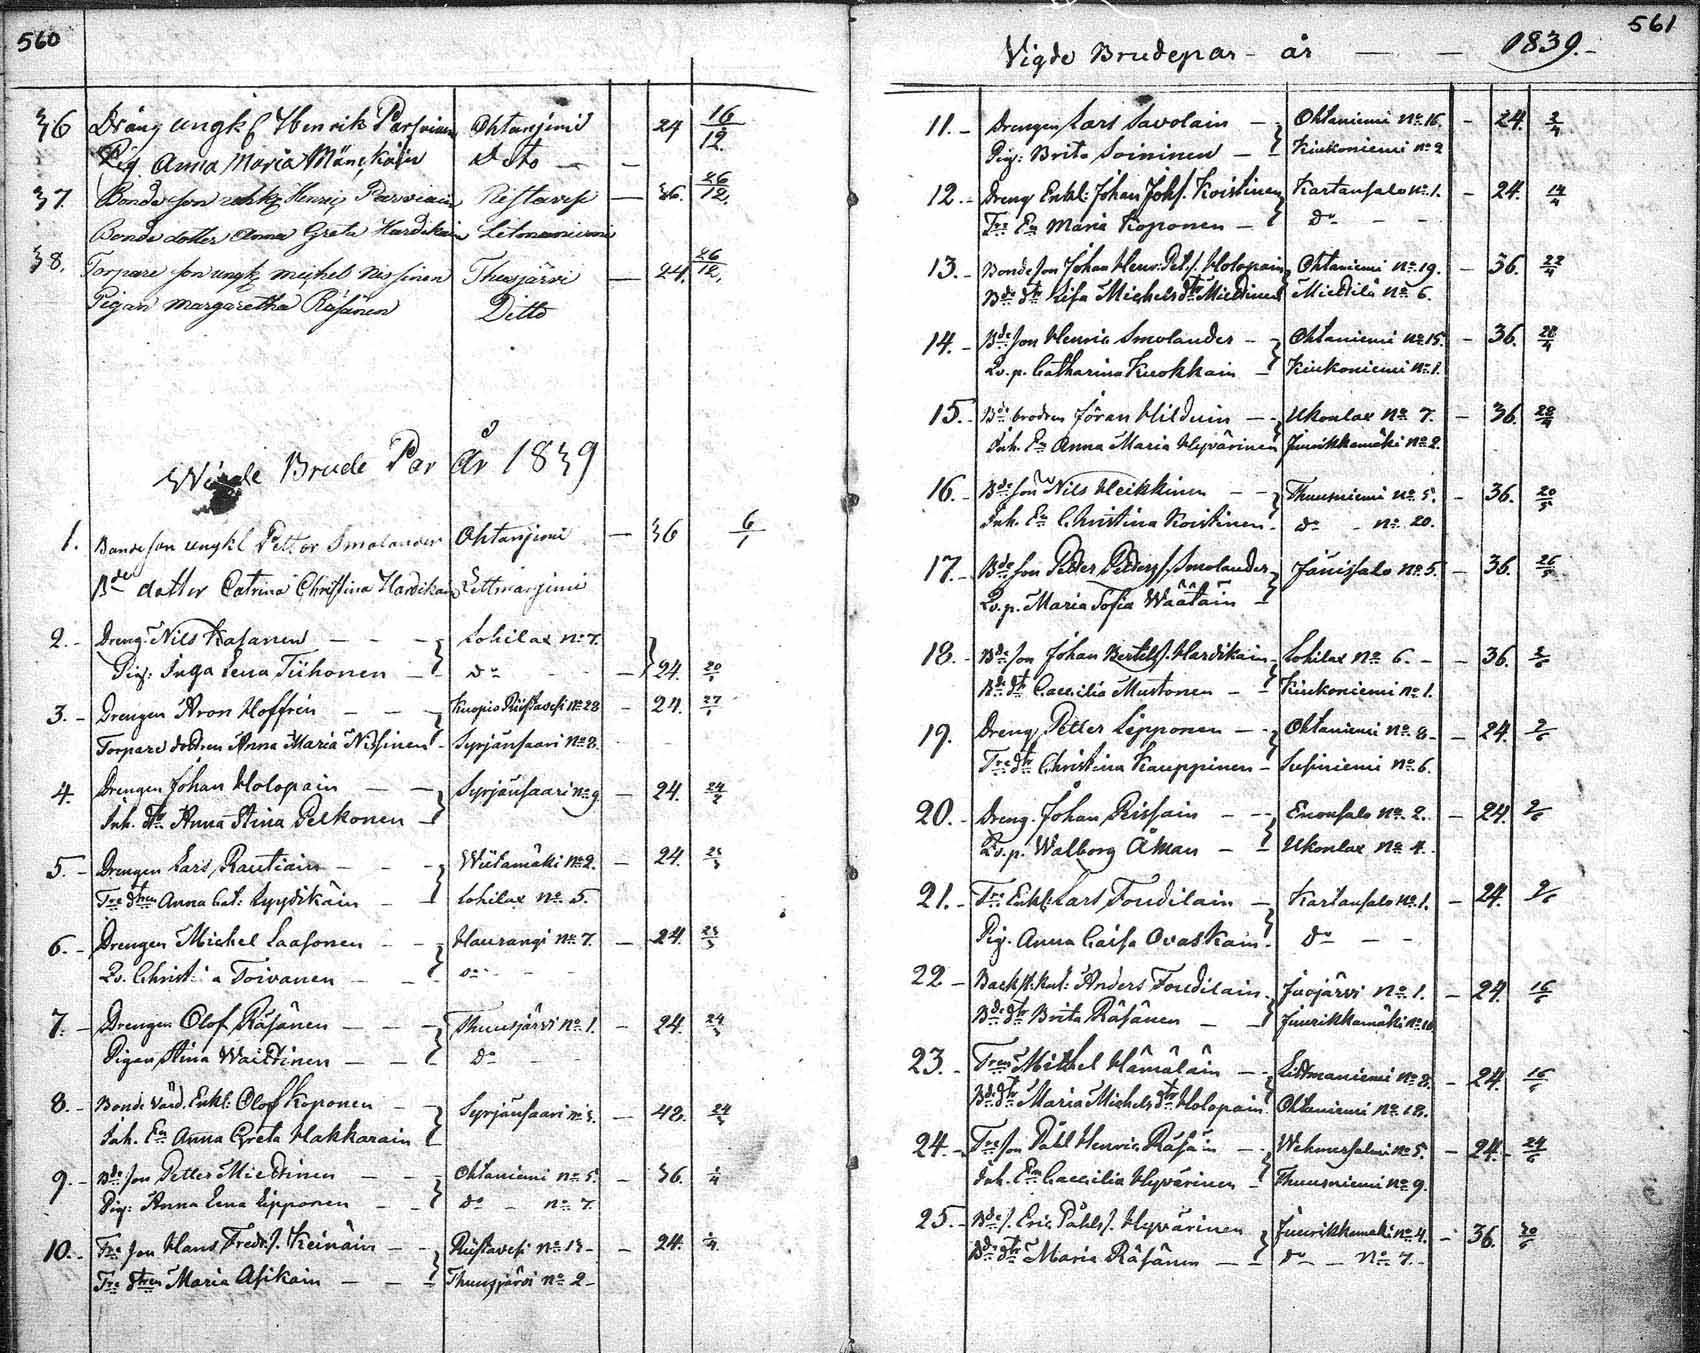 560
36 Dräng ungk. Henrik Parfviain Ohtanjemi 24 16/12
Pig Anna Maria Mänskäin Dito
37. Bonde son ungk. Henric Parviain Ristavesi 36. 26/12.
Bonde dotter Anna Greta Hardikain Litmaniemi
38. Torpare son ungk. Michel Nissinen Thusjärvi 24. 26/12.
Pigan Margaretha Räsänen Ditto
Wigde Brude Par År 1839
1. Bonde son ungkl Petter Smolander Ohtanjemi 36 6/1
Bde dotter Catrina Christina Hardikain Littmanjemi
2. Dreng. Nils Kasanen Lohilax No 7.
Pig: Inga Lena Tiihonen do 24. 20/1
3. Drengen Aron Hoffrén Kuopio Riistavesi No 28 24. 27/1
Torpare dottren Anna Maria Nissinen Syrjänsaari No 8.
4. Drengen Johan Holopain Syrjänsaari No 9 24. 24/2
Inh. dtr Anna Stina Pelkonen
5. Drengen Lars Rautiain Wiitamäki No 2. 24. 23/3
Tre dtren Anna Cat: Lyydikäin Lohilax No 5.
6. Drengen Michel Laasonen Haurangi No 7. 24. 23/3
Qv. Christ a Toivanen do
7. Drengen Olof Räsänen Thuusjärvi No 1. 24. 24/3
Pigan Stina Waittinen do
8. Bonde Enkl. Olof Koponen Syrjänsaari No 48. 24/3
Inh. En Anna Greta Hakkarain
9. Bde son Petter Miettinen Ohtaniemi No 5. 36. 1/4
Pig: Anna Lena Lipponen do No 7.
10. Tre son Hans Fredr.s. Keinäin Riistavesi No 13 24. 1/4
Tre dtren Maria Asikain Thuusjärvi No 2
561
Vigde Brudepar år 1839.
11. Drengen Lars Savolain Ohtaniemi No 16. 24. 2/4
Pig: Brita Soininen Kiukoniemi No 2
12. Dreng Enkl: Johan Johs. Koistinen Kartansalo No 1. 24. 14/4
Tre En Maria Koponen do
13. Bonde Son Johan Henr: Pet.s. Holopain Ohtaniemi No 19. 36. 22/4
Bde dtr Lisa Michels dtr Miettinen Miettilä No 6.
14. Bde son Henric Smolander Ohtaniemi No 15. 36. 28/4
Qv. p. Catharina Kuokkain Kiukoniemi No 1.
15. Bde brodren Jöran Hilduin Ukonlax No 7. 36. 28/4
Inh. En Anna Maria Hyvärinen Juurikkamäki No 2.
16. Bde son Nils Heikkinen Thuusniemi No 5. 36. 20/5
Inh. En Christina Koistinen do No 20.
17. Bde son Petter Petters. Smolander Jänissalo No 5. 36. 26/5
Qv. p. Maria Sofia Wäätäin
18. Bde son Johan Bertels. Hardikain Lohilax No 6. 36. 2/6
Bde dtr Caecilia Mustonen Kiukoniemi No 1.
19. Dreng Petter Lipponen Ohtaniemi No 8. 24. 2/6
Tre dtr Christina Kauppinen Susiniemi No 6.
20. Dreng. Johan Rissain Enonsalo No 2. 24. 2/6
Qv. p. Walborg Åman Ukonlax No 4.
21. Tre Enkl: Lars Toudilain Kartansalo No 1. 24. 2/6
Pig. Anna Caisa Ovaskain do
22 Backst. karl: Anders Toudilain Juojärvi No 1. 24. 16/6
Bde dtr Brita Räsänen Juurikkamäki No 10
23. Tren Mickel Hämäläin Littmaniemi No 8. 24. 16/6
Bde dtr Maria Michels dtr Holopain Ohtaniemi No 18.
24. Tre son Påhl Henric Räsäin Wehmersalmi No 5. 24. 24/6
Inh. En Caecilia Hyvärinen Thuusniemi No 9.
25. Bde s. Eric Påhls s. Hyvärinen Juurikkamäki No 4. 36. 30/6
Bde dtr Maria Räsänen do No 7.